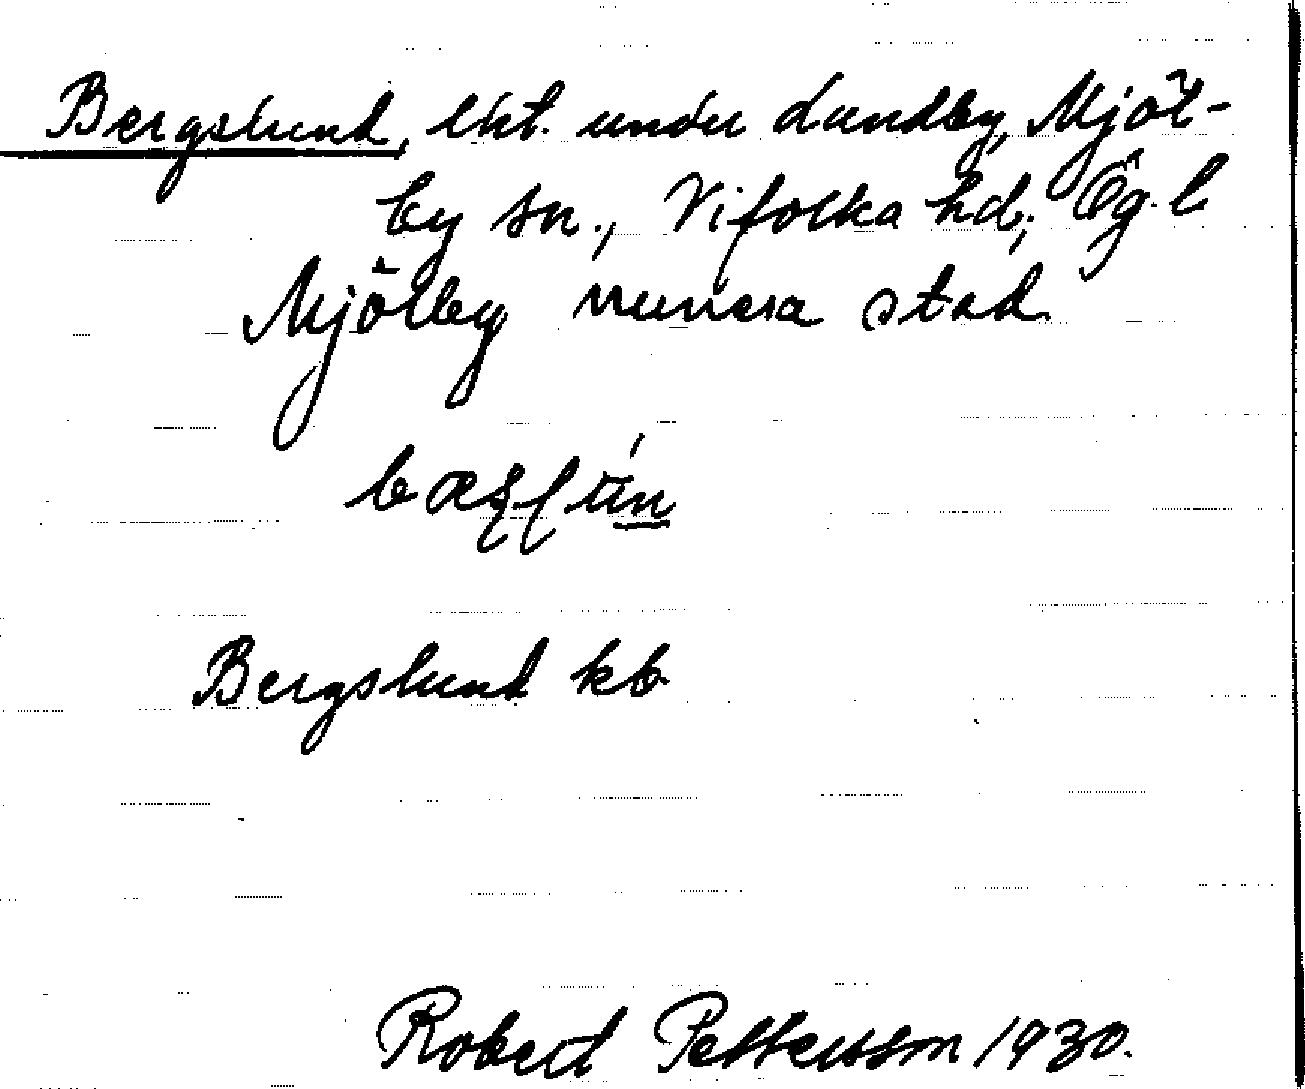 Bergslund, lht. under Lundby, Mjöl-
by sn., Vifolka hd; Ög. l
Mjölby numera stad.
Bergslund kb
Robert Pettersson 1930.